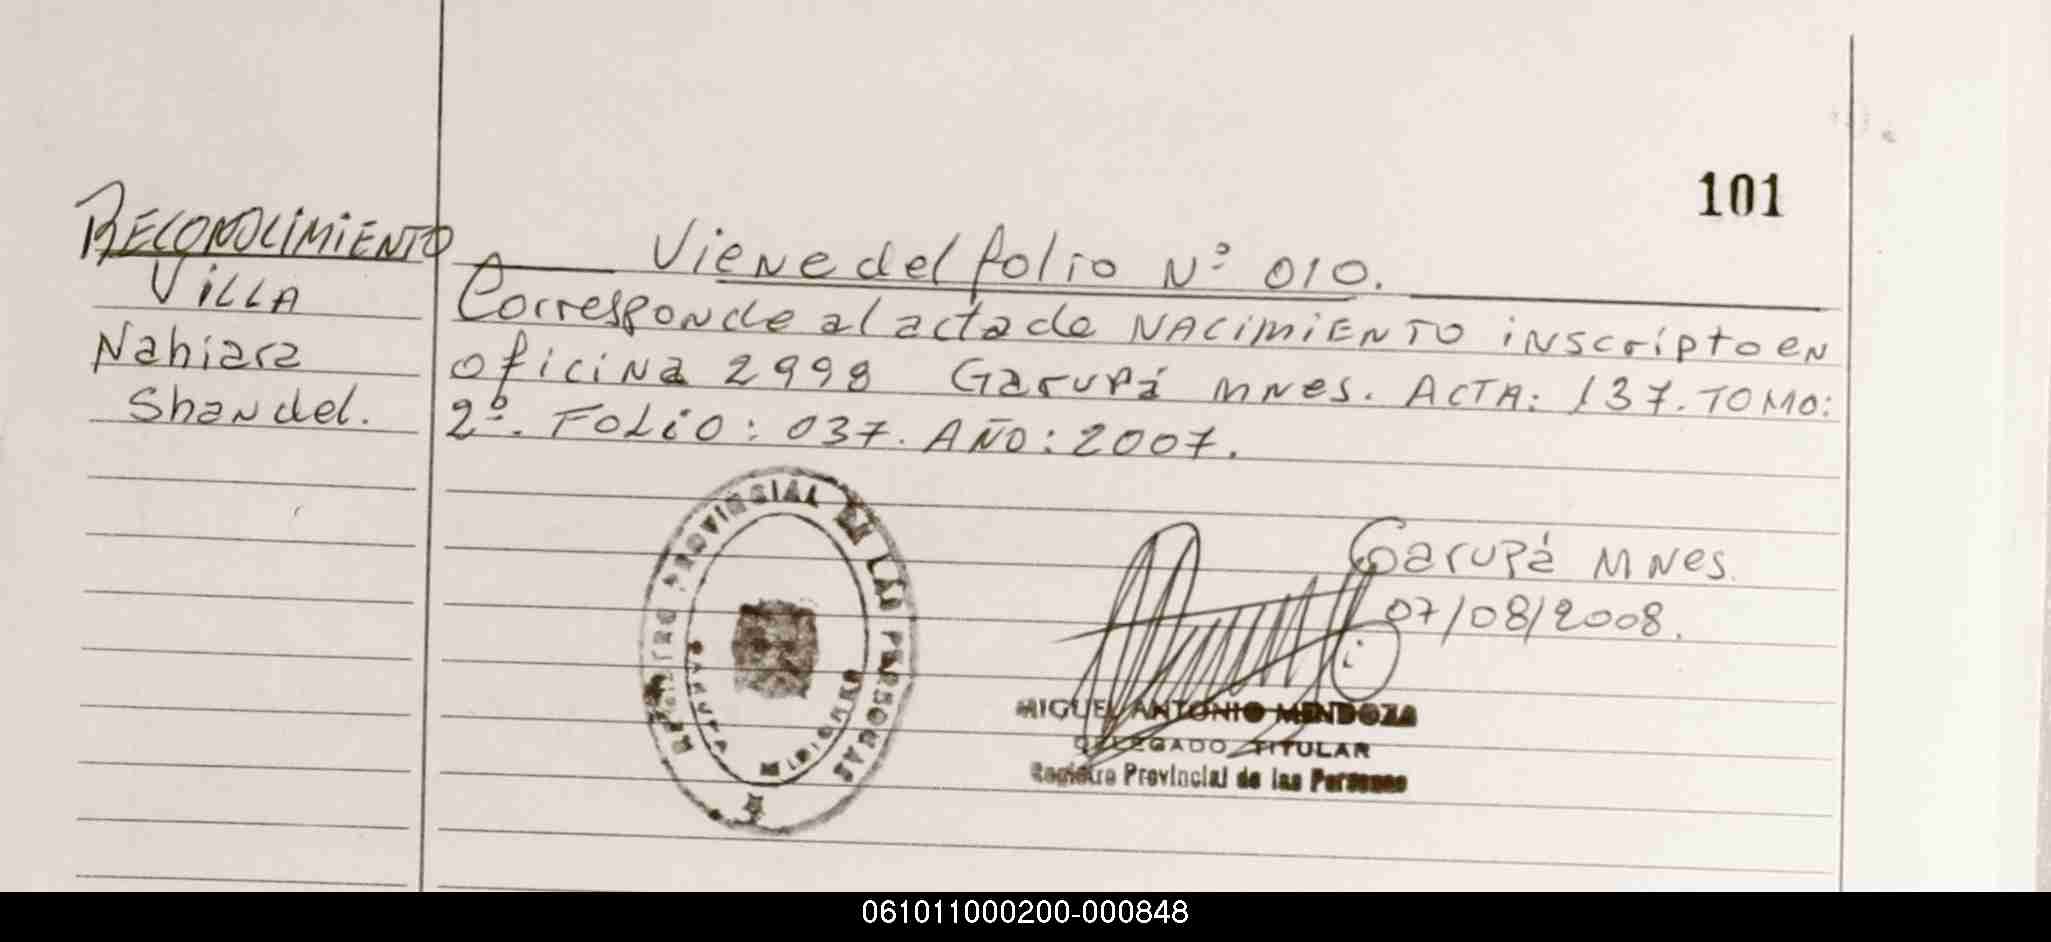 101
RECONOCIMIENTO
VILLA
Nahiara
Shandel.
Viene del folio Nº 010.
Corresponde al acta de NACIMIENTO inscripto en
oficina 2998 Garupá MNes. ACTA: 137. TOMO:
2º. FOLIO: 037. AÑO: 2007.
REGISTRO PROVINCIAL DE LAS PERSONAS
GARUPA MISIONES
Garupá MNes.
07/08/2008.
MIGUEL ANTONIO MENDOZA
DELEGADO TITULAR
Registro Provincial de las Personas
061011000200-000848